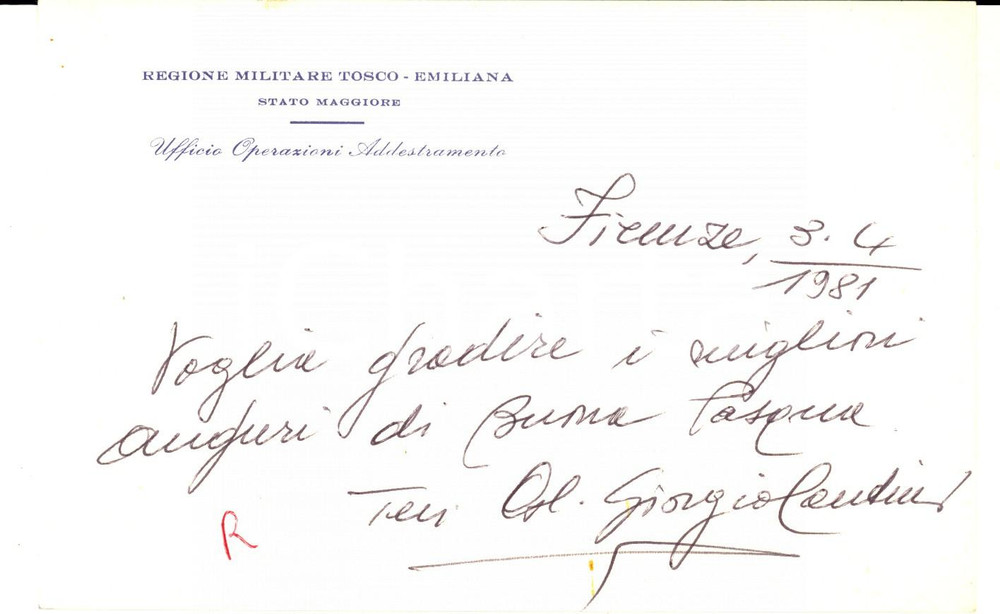 REGIONE MILITARE TOSCO - EMILIANA
STATO MAGGIORE
Ufficio Operazioni Addestramento
Firenze, 3. 4
1981
Voglia gradire i migliori
auguri di Buona Pasqua
Ten Col. Giorgio
R